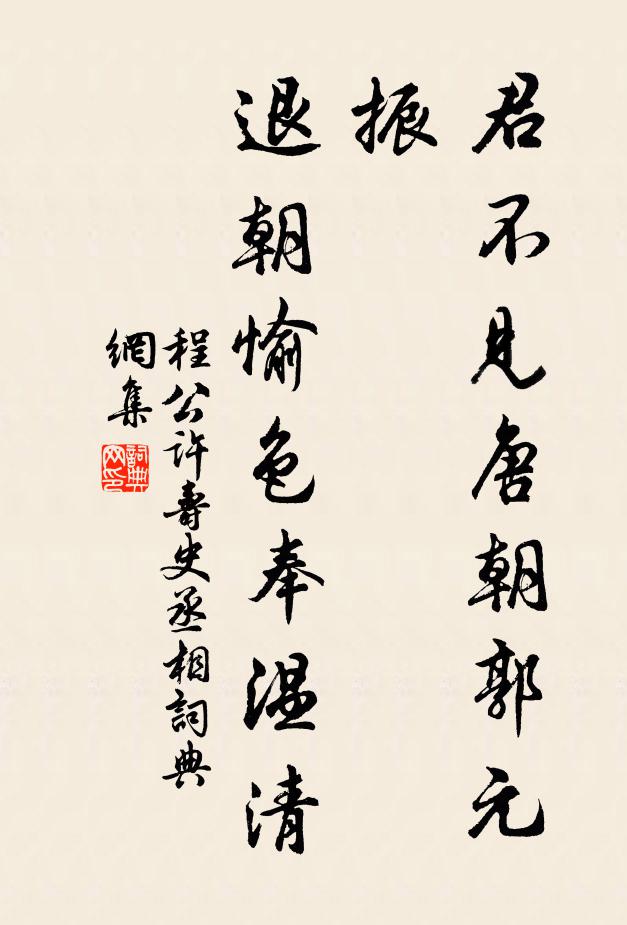 君不見唐朝郭元
振
退朝愉色奉溫清
程公許壽史丞相詞典
網集
詞典
网印